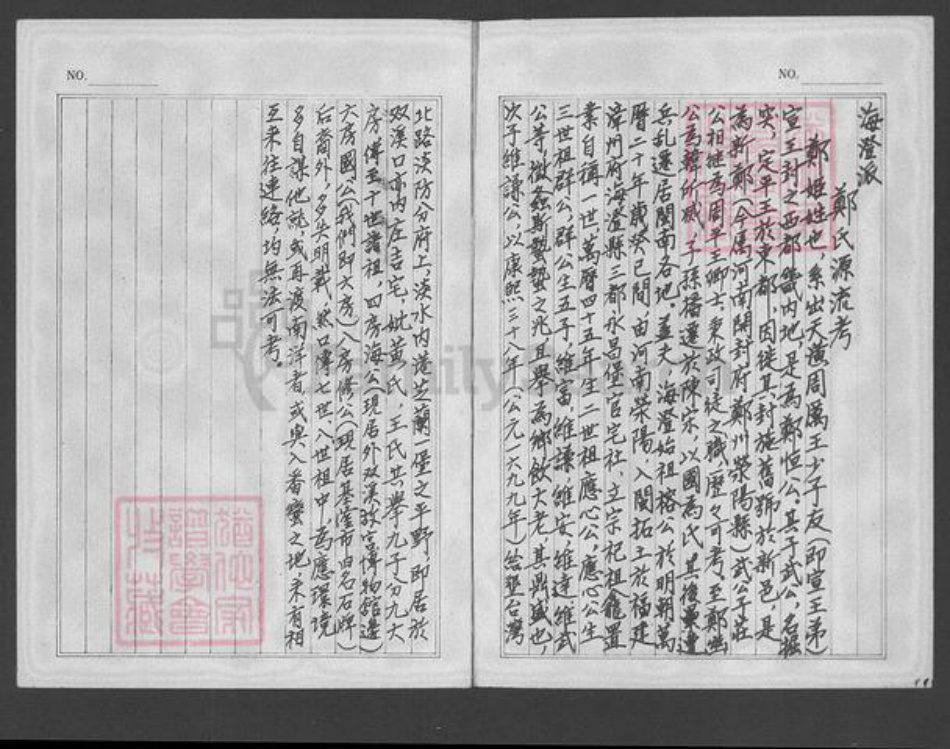 NO.
海澄派
鄭氏源流考
鄭姬姓也,系出天潢周厲王少子友(即宣王弟)
宣王封之西都畿内地是為鄭恒公。其子武公,名掘
突,定平王於東都,因徙其封施舊號於新邑,是
為新鄭(今属河南開封府鄭州滎陽縣)武公子莊
公相继為周平王卿士,秉政司徒之職歷々可考,至鄭幽
公為韓所滅,子孫播遷於陳宋,以國為氏,其後
兵乱遷居閩南各地。蓋夫,海澄始祖榕公於明朝萬
曆二十年歲癸已間,由河南滎陽,入閩拓土於福建
漳州府海澄縣三都,永昌堡官宅社、立宗祀祖龕置
業自稱一世,萬曆四十五年生二世祖應心公,應心公生
三世祖群公,群公生五子,維富,維謙,維安,維達維武
公等,徵螽斯蟄蟄之兆且舉為鄉飲大老,其鼎盛也,
次子維謙公,以康熙三十八年(公元一六九九年)台灣
NO.
北路淡防分府上,淡水内港芝蘭一堡之平野,即居於
双溪口亦内庄吉宅,妣黄氏,王氏共舉九子分九大
房,傳至十世諸祖,四房海公(現居外双溪故宮博物館邊)
六房國公(我們即六房)八房修公(現居基隆市旧名石牌)
后裔外,多失明載,然口傳七世、八世祖中,為應環境
多自謀他就,或再渡南洋者,或與入番蠻之地,未有相
互来往連絡,均無法可考。
FamilySearch